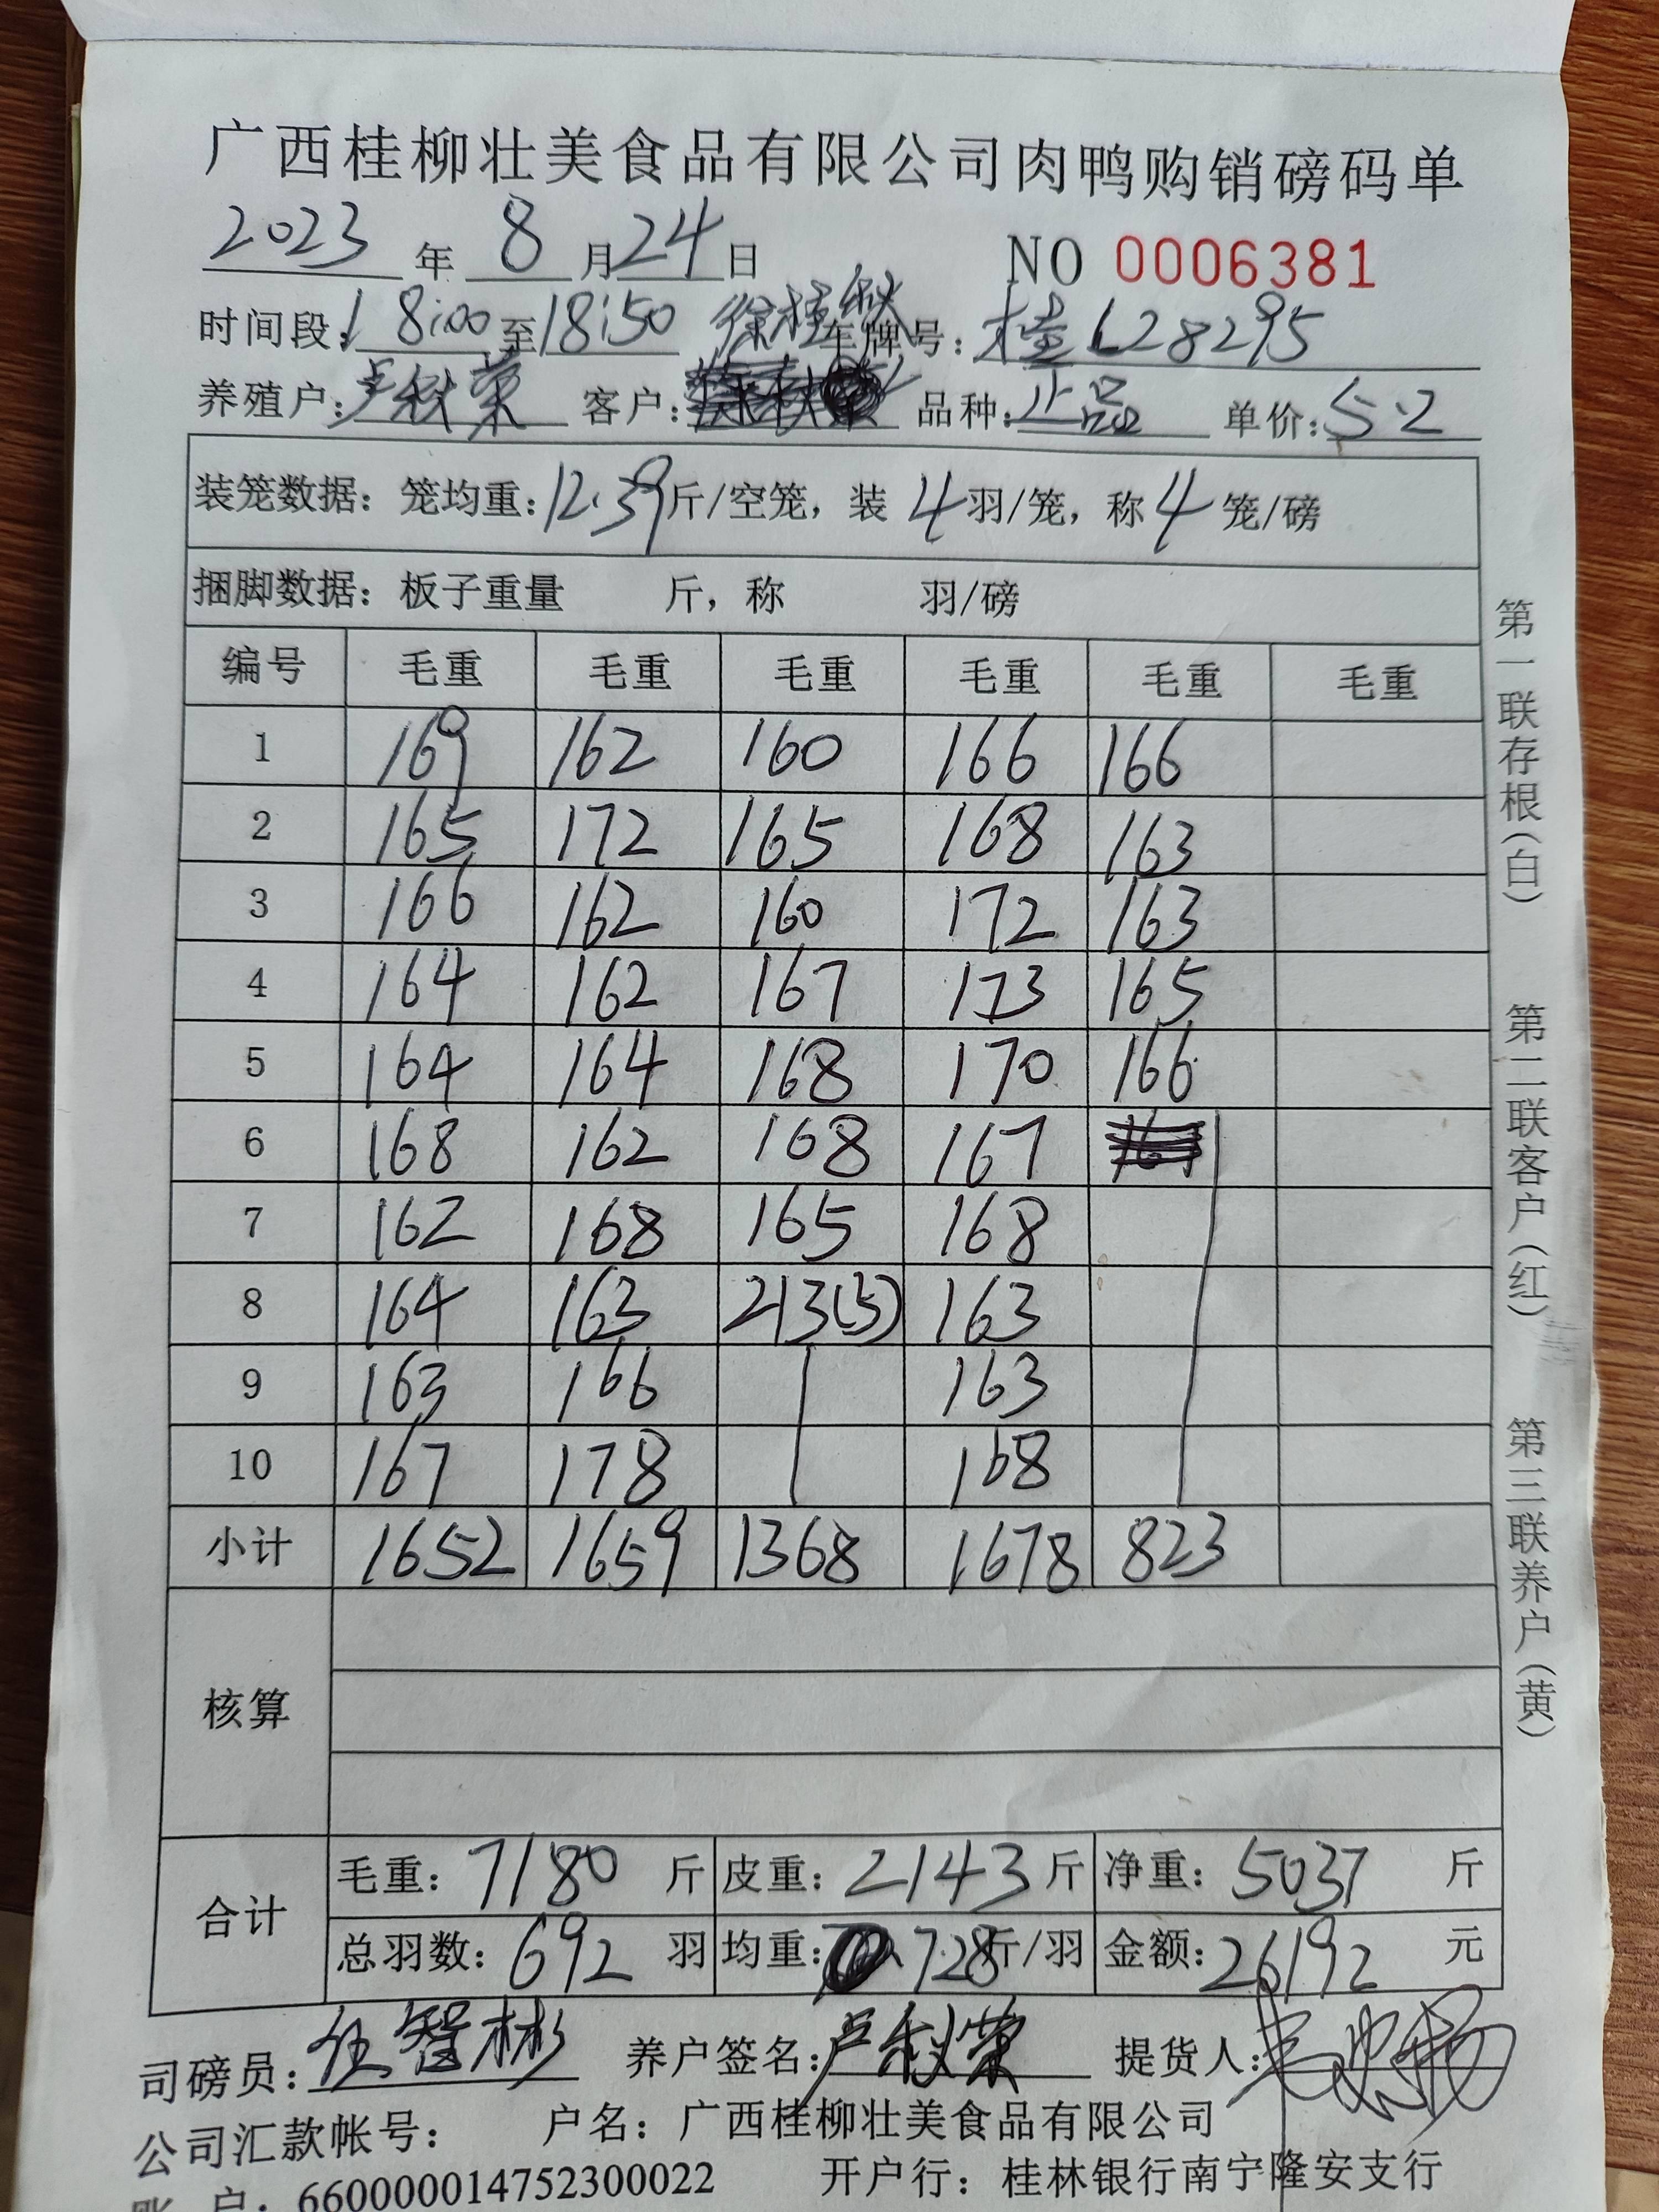 广西桂柳壮美食品有限公司肉鸭购销磅码单
2023 年 8 月 24 日 NO 0006381
时间段: 18:00 至 18:50 徐桂秋 车牌号: 桂L28295
养殖户: 卢秋荣 客户: 品种: 正品 单价: 5.2
装笼数据: 笼均重: 12.39 斤/空笼, 装 4 羽/笼, 称 4 笼/磅
捆脚数据: 板子重量 斤, 称 羽/磅
编号 毛重 毛重 毛重 毛重 毛重 毛重
1 169 162 160 166 166
2 165 172 165 168 163
3 166 162 160 172 163
4 164 162 167 173 165
5 164 164 168 170 166
6 168 162 168 167
7 162 168 165 168
8 164 163 213(5) 163
9 163 166 163
10 167 178 168
小计 1652 1659 1368 1678 823
核算
合计 毛重: 7180 斤 皮重: 2143 斤 净重: 5037 斤
总羽数: 692 羽 均重: 7.28 斤/羽 金额: 26192 元
司磅员: 伍智彬 养户签名: 卢秋荣 提货人:
公司汇款帐号: 户名: 广西桂柳壮美食品有限公司
账 户: 660000014752300022 开户行: 桂林银行南宁隆安支行
第一联存根(白) 第二联客户(红) 第三联养户(黄)